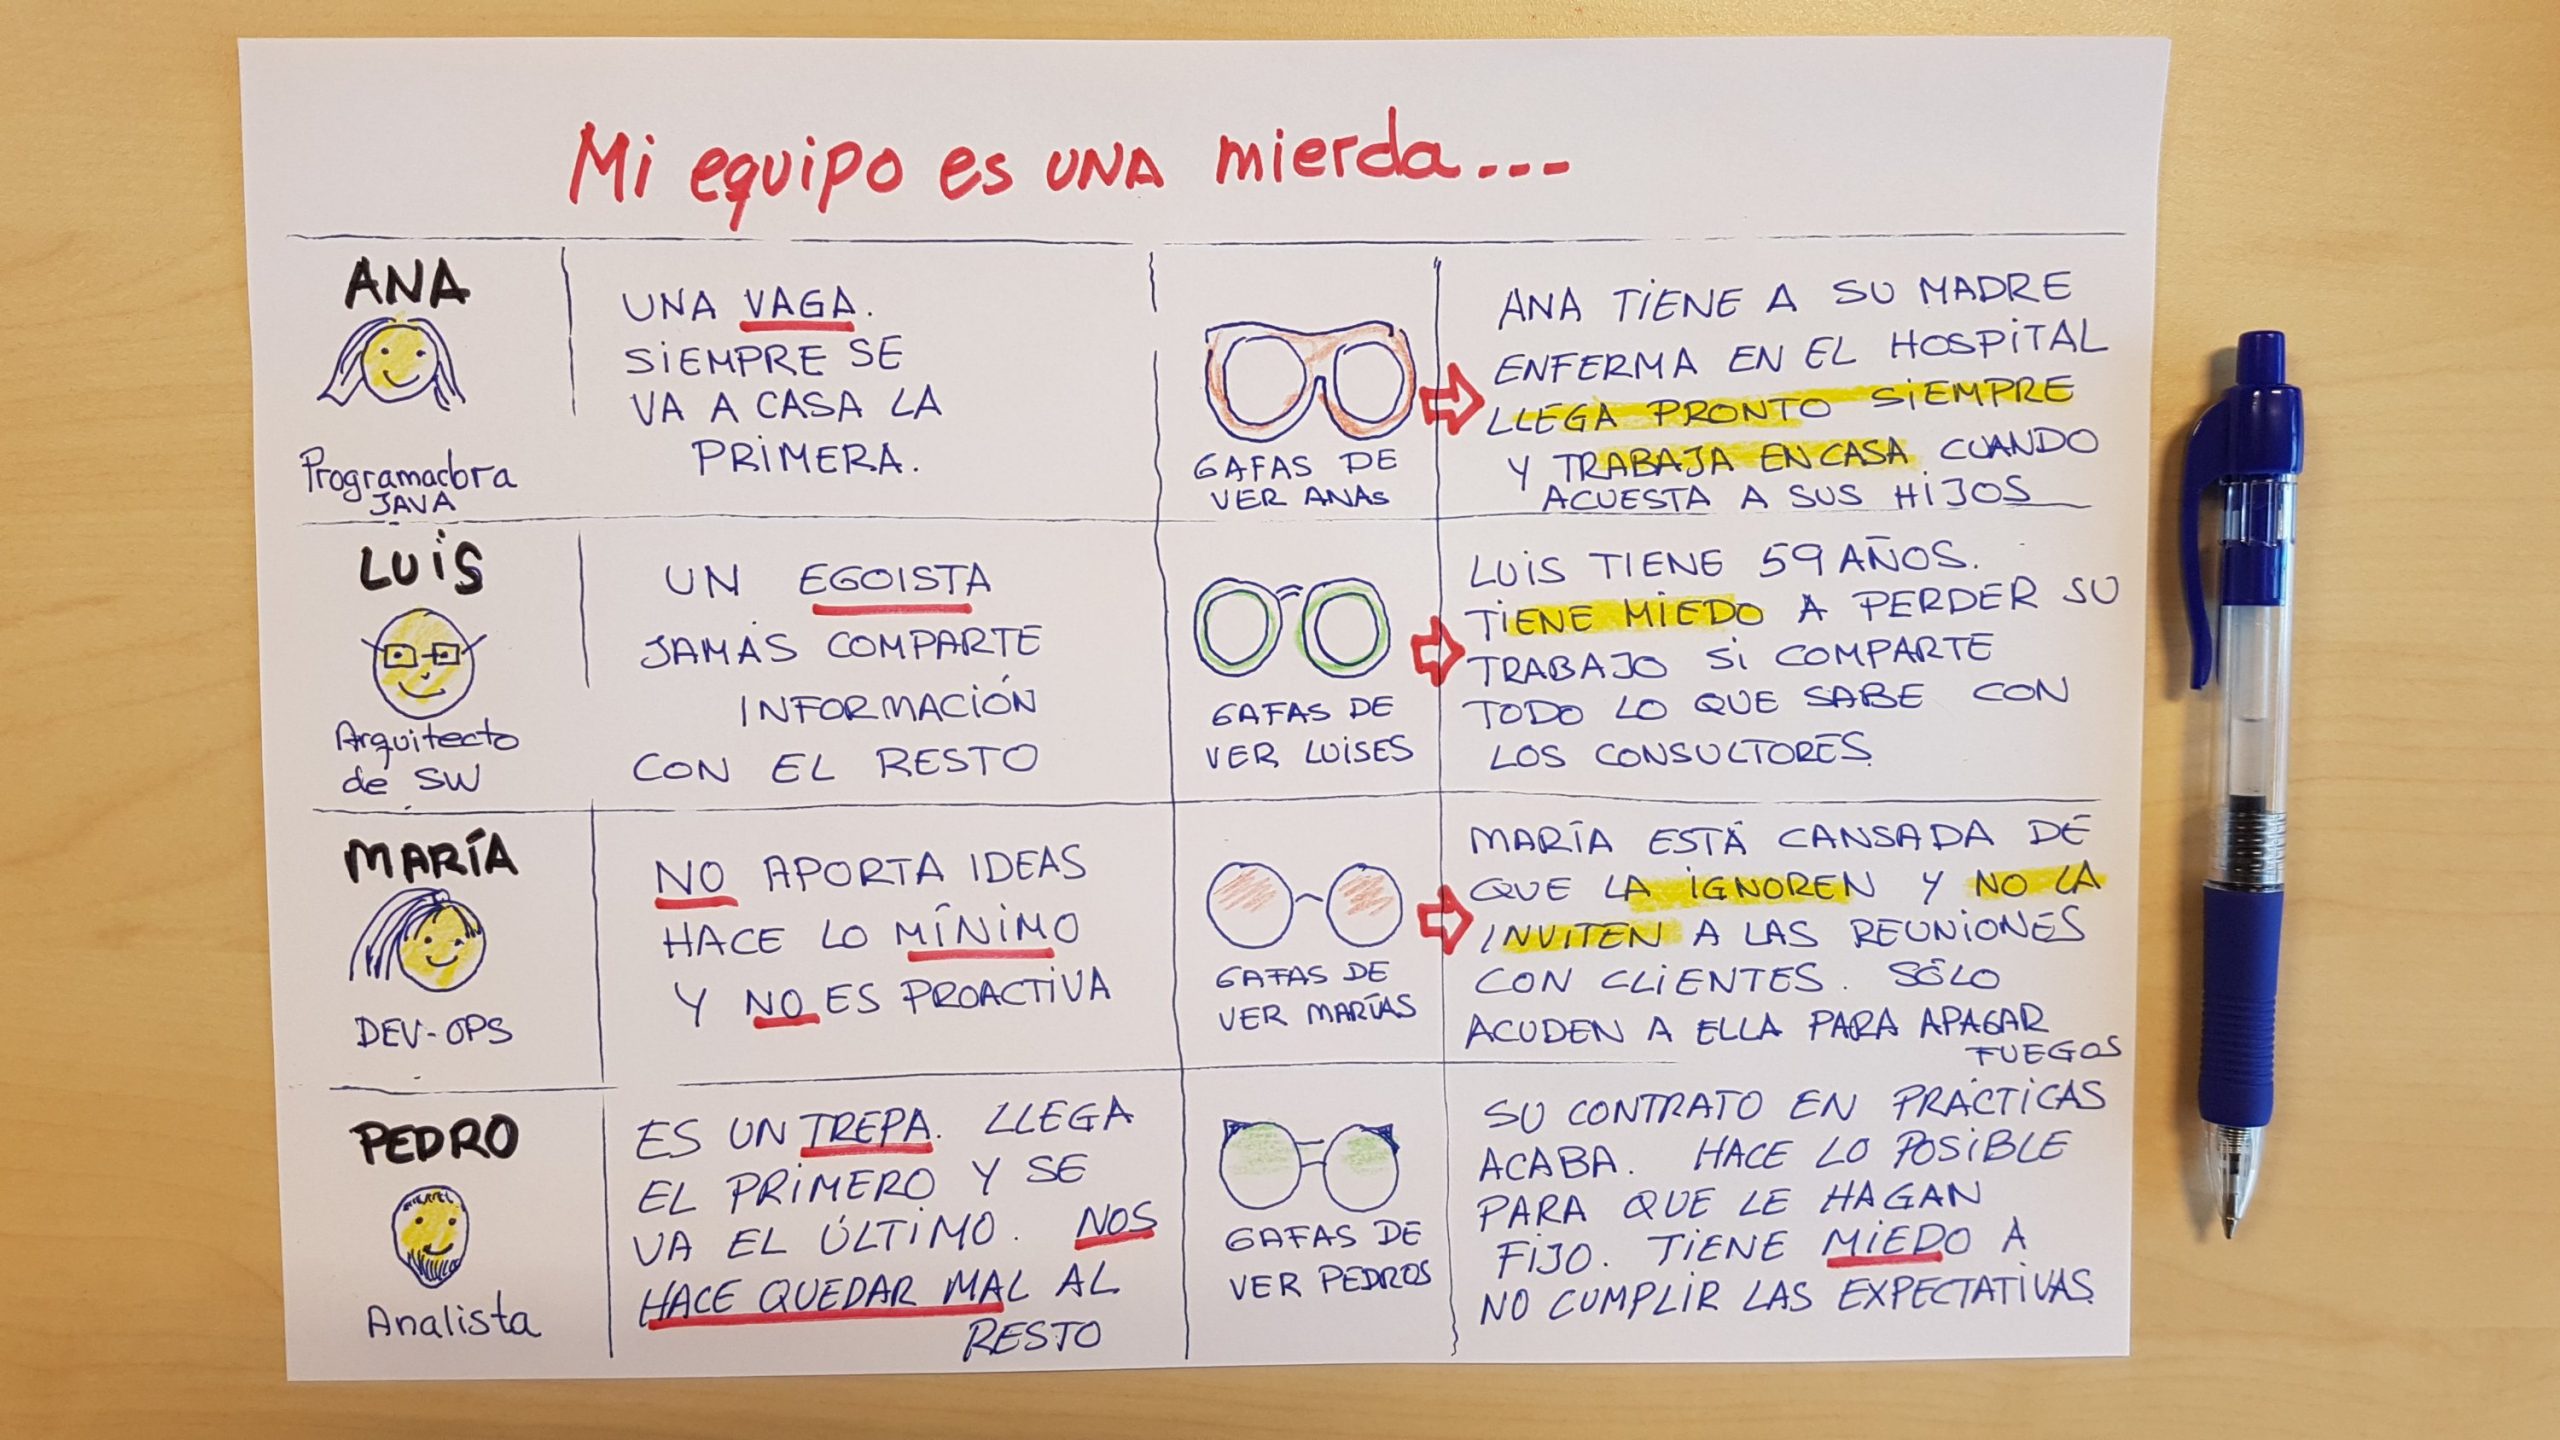 Mi equipo es UNA mierda...
ANA
Programadora
JAVA
UNA VAGA.
SIEMPRE SE
VA A CASA LA
PRIMERA.
GAFAS DE
VER ANAS
ANA TIENE A SU MADRE
ENFERMA EN EL HOSPITAL
LLEGA PRONTO SIEMPRE
Y TRABAJA EN CASA CUANDO
ACUESTA A SUS HIJOS
LUIS
Arquitecto
de SW
UN EGOISTA
JAMÁS COMPARTE
INFORMACIÓN
CON EL RESTO
GAFAS DE
VER LUISES
LUIS TIENE 59 AÑOS.
TIENE MIEDO A PERDER SU
TRABAJO SI COMPARTE
TODO LO QUE SABE CON
LOS CONSULTORES.
MARÍA
DEV-OPS
NO APORTA IDEAS
HACE LO MÍNIMO
Y NO ES PROACTIVA
GAFAS DE
VER MARÍAS
MARÍA ESTÁ CANSADA DE
QUE LA IGNOREN Y NO LA
INVITEN A LAS REUNIONES
CON CLIENTES. SÓLO
ACUDEN A ELLA PARA APAGAR
FUEGOS
PEDRO
Analista
ES UN TREPA. LLEGA
EL PRIMERO Y SE
VA EL ÚLTIMO. NOS
HACE QUEDAR MAL AL
RESTO
GAFAS DE
VER PEDROS
SU CONTRATO EN PRÁCTICAS
ACABA. HACE LO POSIBLE
PARA QUE LE HAGAN
FIJO. TIENE MIEDO A
NO CUMPLIR LAS EXPECTATIVAS.